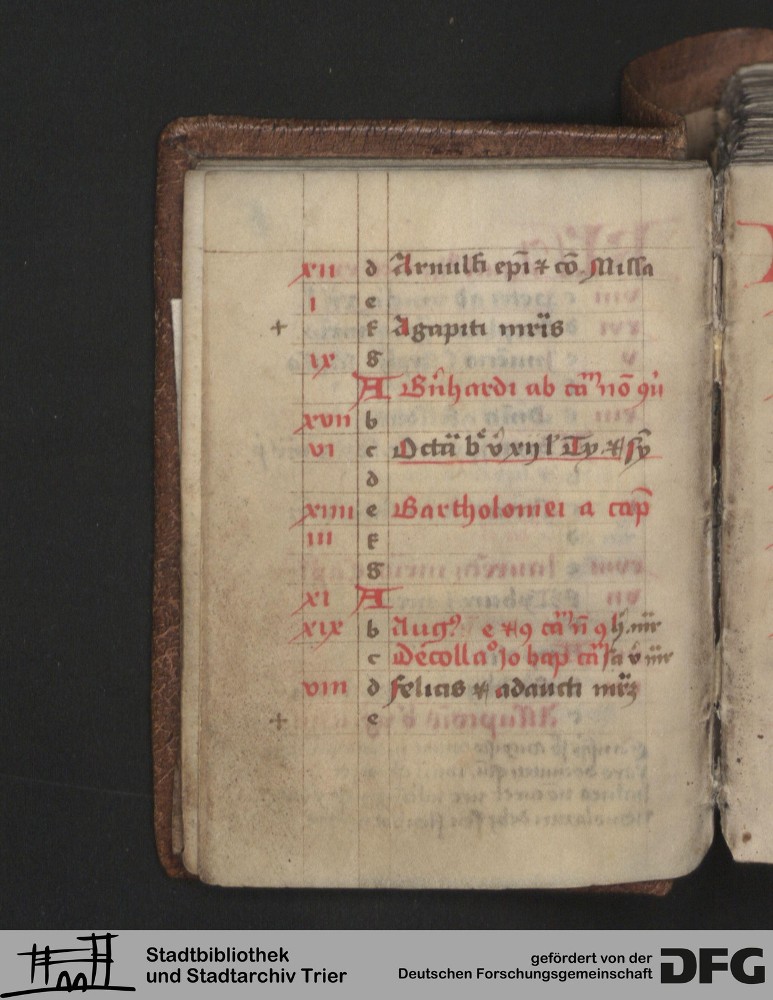 xii d Arnulfi ep̄i ⁊ cō. Missa
i e
+ f Agapiti mr̄is
ix g
A Bn̄hardi ab cā nō 9ū
xvii b
vi c Octā b v̄ xij l Ty. ⁊ sȳ
d
xiiii e Bartholomei a cap̄
iii f
g
xi A
xix b Aug⁹. e ⁊ 9 cā n̄ 9
c Decolla° Jo bap̄ cā
viii d felicis ⁊ adaucti
+ e
Stadtbibliothek
und Stadtarchiv Trier
gefördert von der
Deutschen Forschungsgemeinschaft
DFG